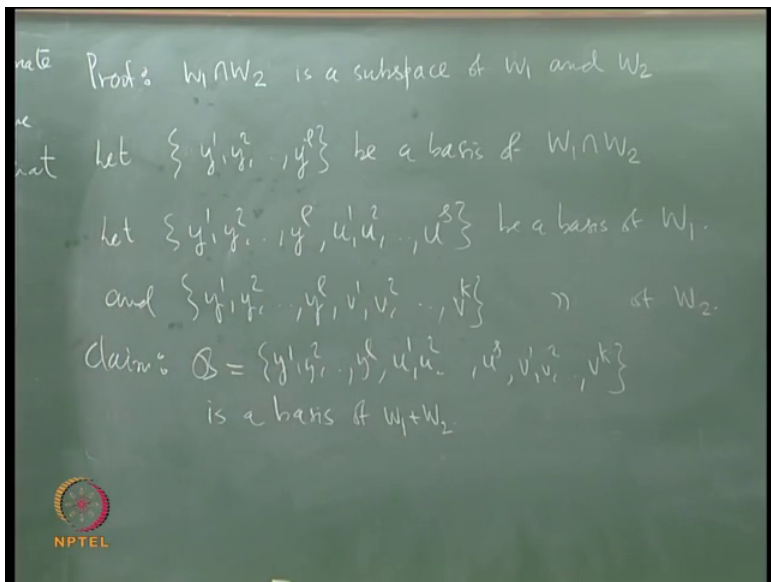 nate
ne
hat
Proof: W₁∩W₂ is a subspace of W₁ and W₂
Let {y¹,y²,..,yˡ} be a basis of W₁∩W₂
Let {y¹,y²,..,yˡ,u¹,u²,..,uˢ} be a basis of W₁.
and {y¹,y²,..,yˡ,v¹,v²,..,vᵏ} " of W₂.
Claim: ℬ = {y¹,y²,..,yˡ,u¹,u²,..,uˢ,v¹,v²,..,vᵏ}
is a basis of W₁+W₂.
NPTEL